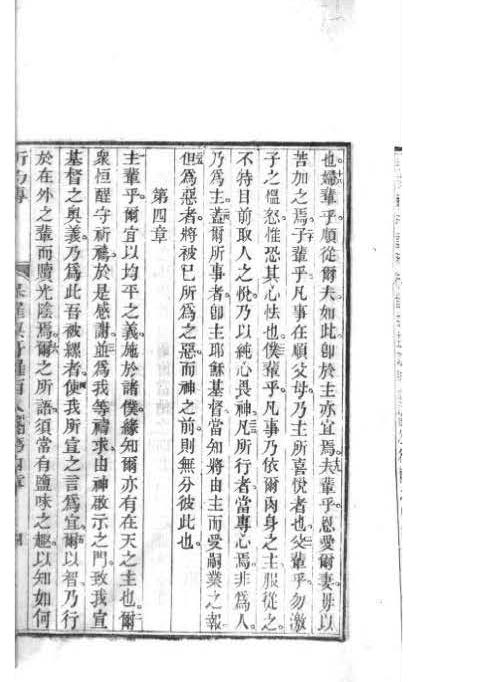 也婦輩乎順從爾夫如此卽於主亦宜焉夫輩乎恩愛爾妻毋以
苦加之焉子輩乎凡事在順父母乃主所喜悅者也父輩乎勿激
子之慍怒惟恐其心怯也僕輩乎凡事乃依爾肉身之主服從之
不特目前取人之悅乃以純心畏神凡所行者當專心焉非爲人
乃爲主蓋爾所事者卽主耶穌基督當知將由主而受嗣業之報
但爲惡者將被已所爲之惡而神之前則無分彼此也
第四章
主輩乎爾宜以均平之義施於諸僕緣知爾亦有在天之主也爾
衆恒醒守祈禱於是感謝並爲我等禱求由神啟示之門致我宣
基督之奧義乃爲此吾被縲者使我所宣之言爲宜爾以智乃行
於在外之輩而贖光陰焉爾之所語須常有鹽味之趣以知如何